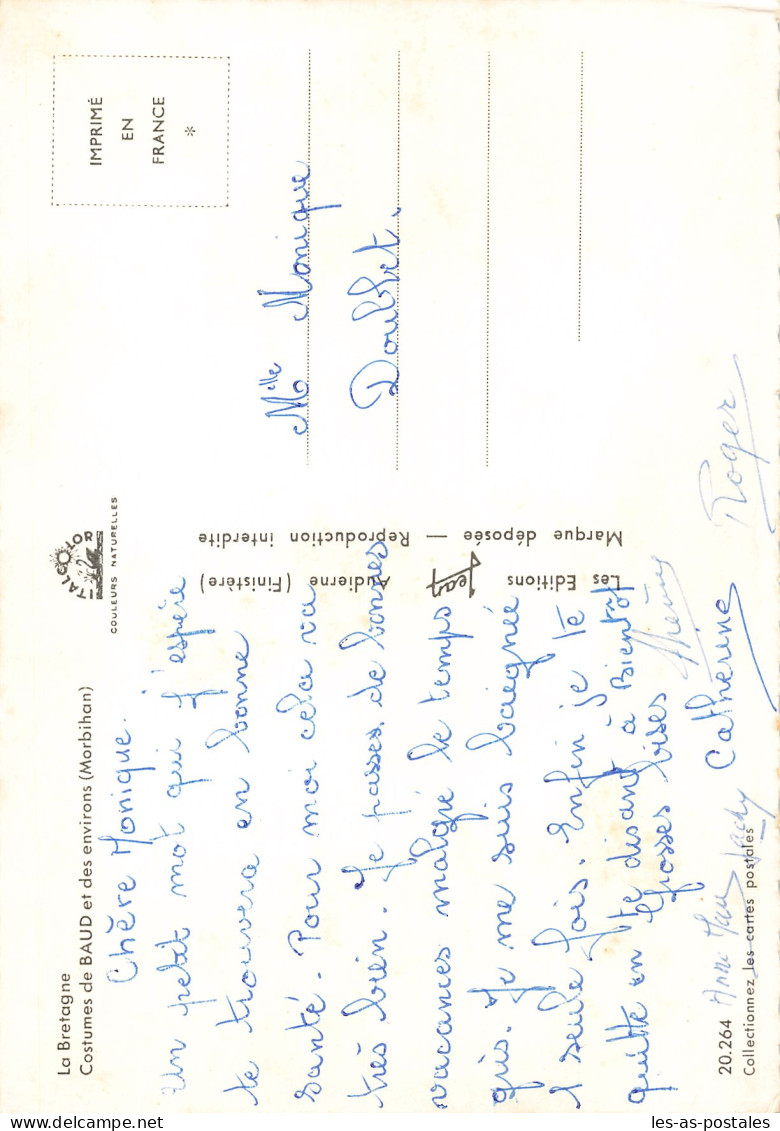 La Bretagne
Costumes de BAUD et des environs (Morbihan)
Chère Monique.
Un petit mot qui j'espère
te trouvera en bonne
santé. Pour moi cela va
très bien. Je passes de bonnes
vacances malgré le temps
gris. Je me suis baignée
1 seule fois. Enfin je te
quitte en te disant à Bientot
Grosses bises
Catherine
Thierry
Roger
Anne Jacky
20.264
Collectionnez les cartes postales
ITALCOLOR
COULEURS NATURELLES
Les Editions Jean Audierne (Finistère)
Marque déposée — Reproduction interdite
IMPRIMÉ
EN
FRANCE
*
Melle Monique
Doublet.
les-as-postales